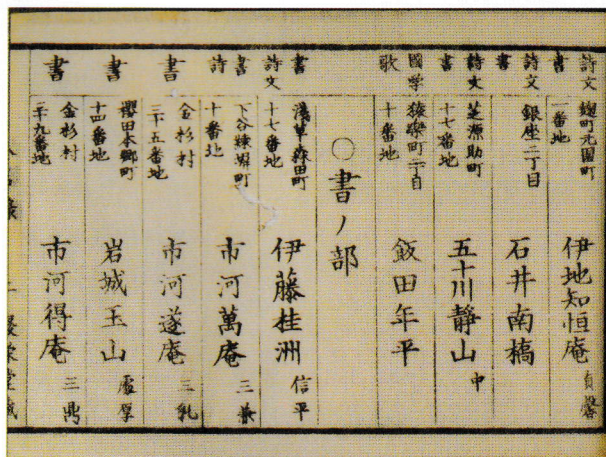 詩文
書
麹町元園町
一番地
伊地知恒庵
貞馨
詩文
書
銀座二丁目
石井南橋
詩文
書
芝源助町
十七番地
五十川静山
中
國学
歌
猿樂町二丁目
十番地
飯田年平
〇書ノ部
書
詩文
浅草森田町
十七番地
伊藤桂洲
信平
書
詩
下谷練塀町
十番地
市河萬庵
三兼
書
金杉村
三十五番地
市河遂庵
書
櫻田本郷町
十四番地
岩城玉山
書
金杉村
三十九番地
市河得庵
三鼎